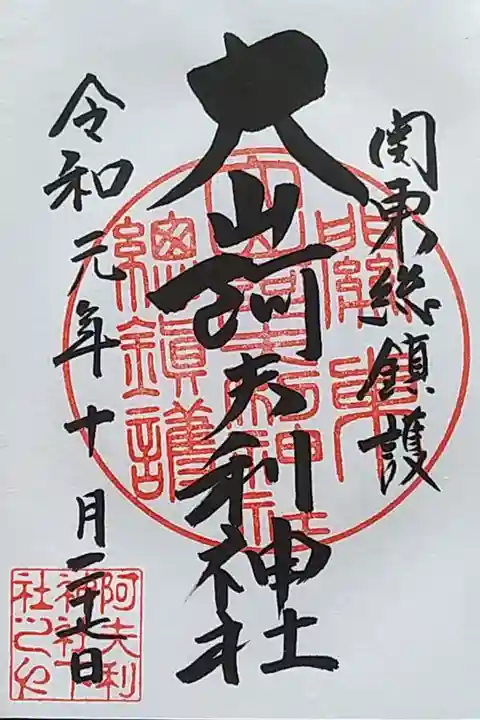 関東総鎮護
大山阿夫利神社
令和元年十月二十七日
關東
大山阿夫利神社
總鎮護
阿夫利
神社下
社之印